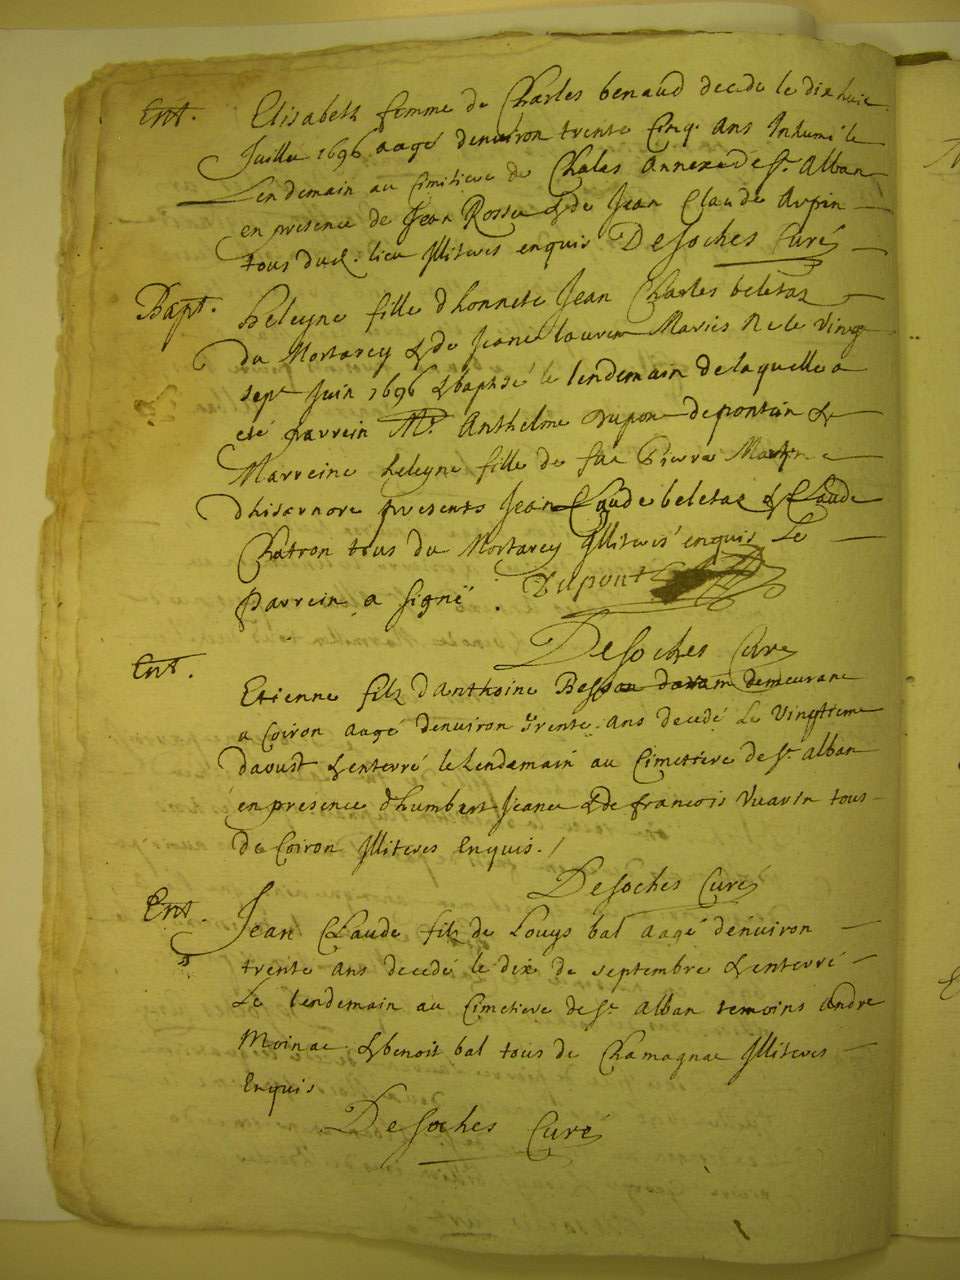 Ent. Elisabeth femme de Charles benaud decede le dixhuit
Juillet 1696 aagé denuiron trente Cinq ans Inhumé le
Lendemain au Cimitiere de Chalas Annexe de St Alban
en presence de Jean Rosset & de Jean Claude Arpin
tous dud. lieu Illiteres enquis DeSoches Curé
Bapt. heleyne fille dhonnete Jean Charles beletaz
du Mortarey & de Jeane Mariés Ne le Vingt
sept Juin 1696 & baptisé le lendemain de laquelle a
eté parrein Mr. Anthelme Dupont de &
Marreine heleyne fille de feu Pierre
dhisernore presents Jean Claude beletaz & Claude
Chatron tous du Mortarey Illiterés enquis Le
parrein a signé. Dupont
DeSoches Curé
Ent. Etienne filz dAnthoine demeurant
a Coiron aagé denuiron Trente ans decedé Le Vingtieme
daoust & enterré le Lendemain au Cimettiere de St alban
en presence dhumbert Jeanet & de francois Vuarin tous
de Coiron Illiteres Enquis./
DeSoches Curé
Ent. Jean Claude filz de Louys bal aagé denuiron
trente ans decedé le dix de septembre & enterré
Le lendemain au Cimetiere de St Alban temoins andre
Moinat & benoit bal tous de Chamagnat Illiteres
Enquis
DeSoches Curé